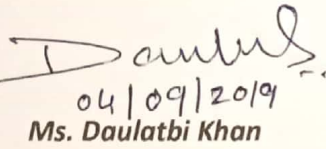 Daulat
04/09/2019
Ms. Daulatbi Khan